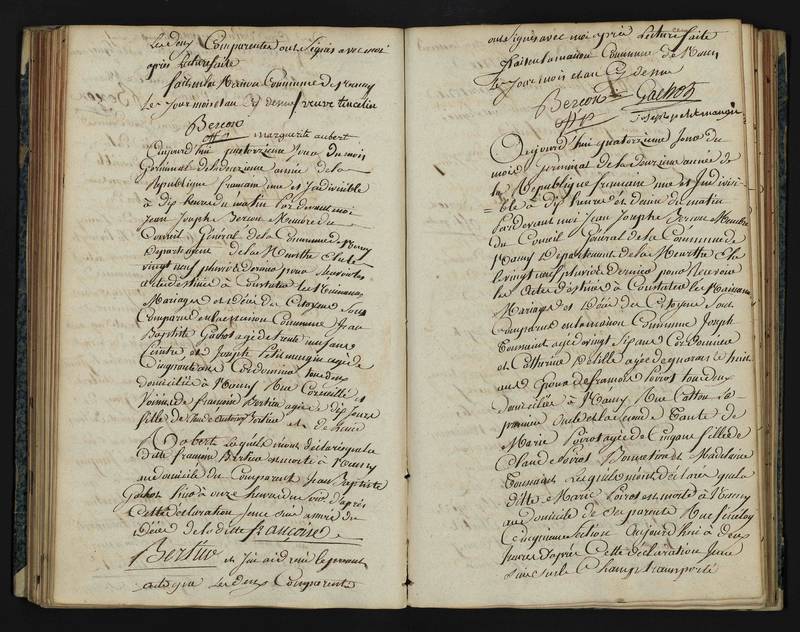 Les deux Comparentes ont Signés avec moi
après Lecture faite
fait en la Maison Commune de Nancy
Les Jour mois et an Cy dessus veuve tincelin
Berson
marguerite aubert
Aujourd'hui quatorzieme Jour du mois
Germinal de la douzieme année de la
République francaise une et Indivisible
à dix heure du matin Pardevant moi
Jean Joseph Berson Membre du
Conseil Général de la Commune de Nancy
Département de la Meurthe Elu le
vingt neuf pluviose dernier pour Recevoir les
acte destiné à Constater les Naissances
Mariages et Décès des Citoyens Sont
Comparus en la maison Commune Jean
Baptiste Gachot agé de trente
et Joseph Petitmangin agé de
Cinquante ans Cordonnier tous deux
domiciliés à Nancy Rue
Voisins de françoise Bertin agée de dix
fille de Bertin et de
Lesquels m'ont déclaré que la
ditte françoise Bertin est morte à Nancy
au domicile du Comparant Jean Baptiste
Gachot hier à onze heures du Soir d'après
Cette déclaration Je me Suis assuré du
Décès de la ditte françoise
Bertin et J'ai rédigé le présent
acte que Les deux Comparents
ont Signés avec moi après Lecture faite
fait en la maison Commune de Nancy
Les Jour mois et an Cy dessus
Berson Gachot
Joseph petitmangin
Aujourd'hui quatorzieme Jour du
mois Germinal de la Douzieme année de
la République française une et Indivisi-
=ble à dix heure et demie du matin
Pardevant moi Jean Joseph Berson Membre
du Conseil Général de la Commune de
Nancy Département de la Meurthe Elu
le vingt neuf pluviose dernier pour Recevoir
les Acte destiné à Constater les Naissances
Mariages et Décès des Citoyens Sont
Comparus en la maison Commune Joseph
Toussaint agé de vingt Six ans Cordonnier
et Catherine agée de quarante huit
ans Epouse de francois Poirot tous deux
domiciliés à Nancy Rue
premier Oncle et la seconde Tante de
Marie Poirot agée de Cinq ans fille de
Claude Poirot et Madelaine
Toussaint Lesquels m'ont déclaré que la
ditte Marie Poirot est morte à Nancy
au domicile de Ses parents Rue
Cinquieme Section aujourd'hui à deux
heures d'après Cette déclaration Je me
Suis Sur le Champ transporté